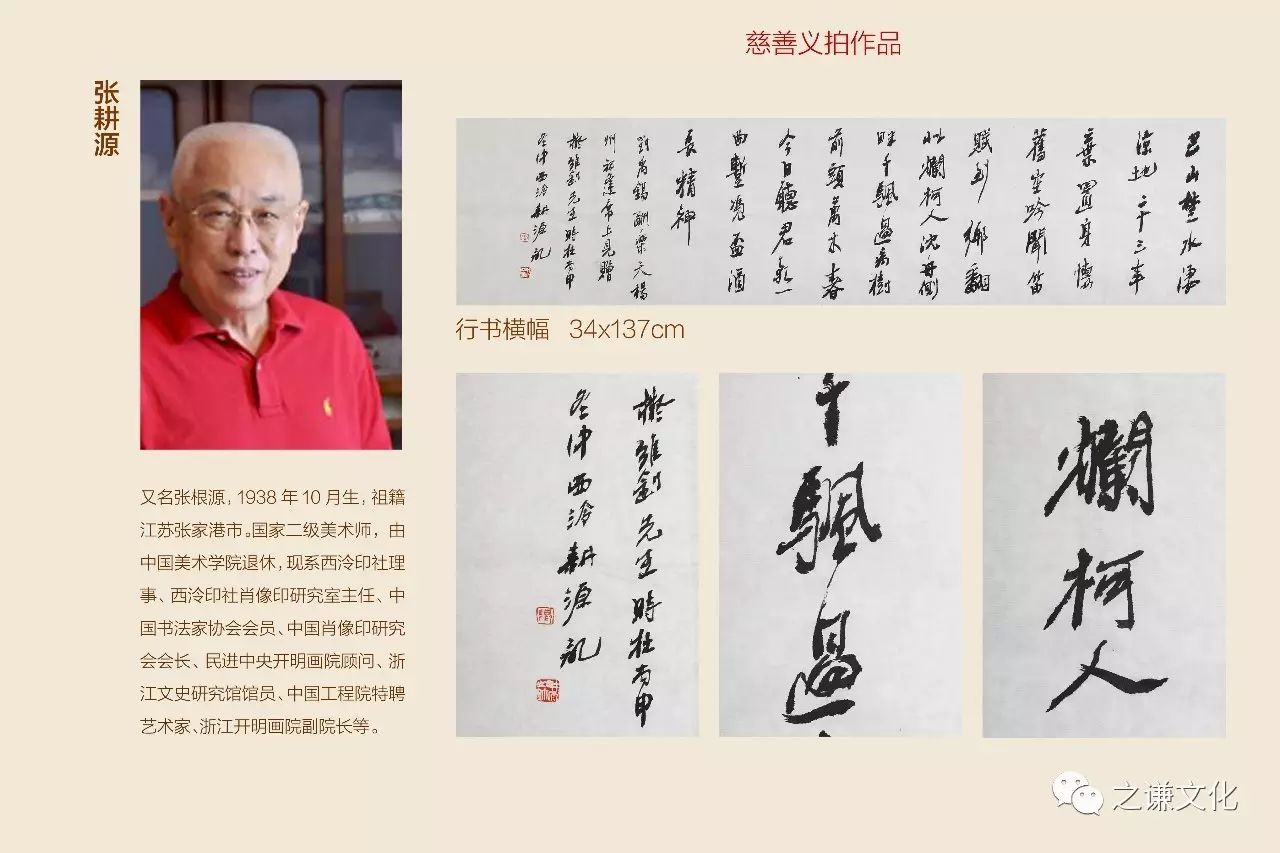 慈善义拍作品
张耕源
巴山楚水凄
凉地二十三年
弃置身怀
舊空吟聞笛
賦到鄉翻
似爛柯人沈舟側
畔千颿過病樹
前頭萬木春
今日聽君歌一
曲暫憑盃酒
長精神
劉禹錫酬樂天楊
州初逢席上見贈
樵雛釗先生時在丙申
冬仲西泠耕源記
行书横幅 34x137cm
先生時在丙申
冬仲西泠耕源記
千颿過
爛柯人
又名张根源，1938 年 10 月生，祖籍
江苏张家港市。国家二级美术师，由
中国美术学院退休，现系西泠印社理
事、西泠印社肖像印研究室主任、中
国书法家协会会员、中国肖像印研究
会会长、民进中央开明画院顾问、浙
江文史研究馆馆员、中国工程院特聘
艺术家、浙江开明画院副院长等。
之谦文化